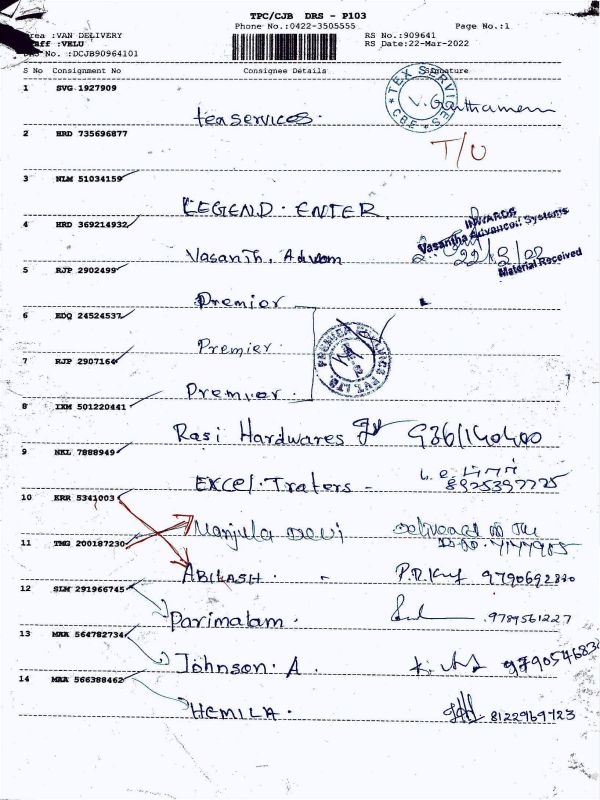 TPC/CJB DRS - P103
Phone No.:0422-3505555 Page No.:1
Area :VAN DELIVERY RS No.:909641
Staff :VELU RS Date:22-Mar-2022
DRS No. :DCJB90964101
S No Consignment No Consignee Details Signature
1 SVG 1927909
tex services.
TEX SERVICES
CBE
T/U
2 HRD 735696877
3 NLM 51034159
LEGEND. ENTER
4 HRD 369214932
INWARDS
Vasantha Advanced Systems
22/3/22
Material Received
Vasanth. Advam
5 RJP 2902499
Premier
6 EDQ 24524537
Premier.
7 RJP 2907164
Premier.
8 IXM 501220441
Rasi Hardwares
9 NKL 7888949
EXCEL. Traters - 8925397725
10 KRR 5341003
Manjula Devi Delivered
11 TMG 200187230
ABILASH. - 9790692830
12 SLM 291966745
Parimalam. 9789561227
13 MAA 564782734
Johnson. A.
14 MAA 566388462
HEMILA. 8122969723